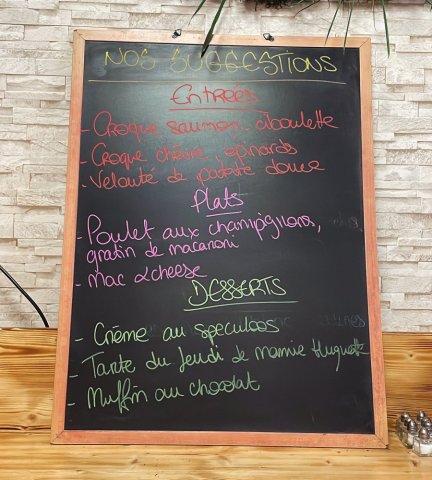 NOS SUGGESTIONS
Entrees
- Croque saumon, ciboulette
- Croque chèvre, épinards
- Velouté de patate douce
Plats
- Poulet aux champignons,
gratin de macaroni
- mac & cheese
DESSERTS
- Crème au speculoos
- Tarte du Jeudi de mamie Huguette
- Muffin au chocolat